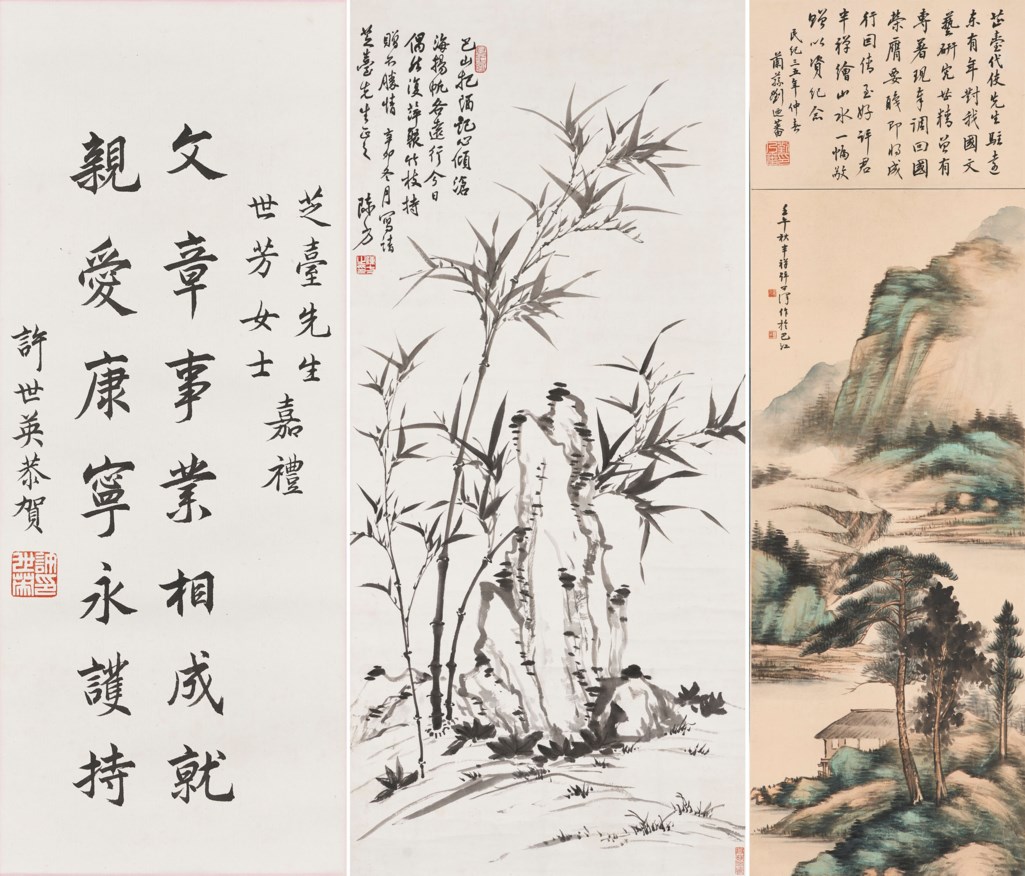 芝臺先生
世芳女士
嘉禮
文章事業相成就
親愛康寧永護持
許世英恭賀
巴山把酒記心傾滄
海揚帆各遠行今日
偶然復萍聚竹枝持
贈不勝情 辛卯冬月寫請
芝臺先生正之 陳方
芷臺代使先生駐遠
東有年對我國文
藝研究甚精曾有
專著現奉調回國
榮膺要職即將成
行因倩至好許君
半禪繪山水一幅敬
贈以資紀念
民紀三五年仲春
劉迪蕃
壬午秋半禪許 作於巴江